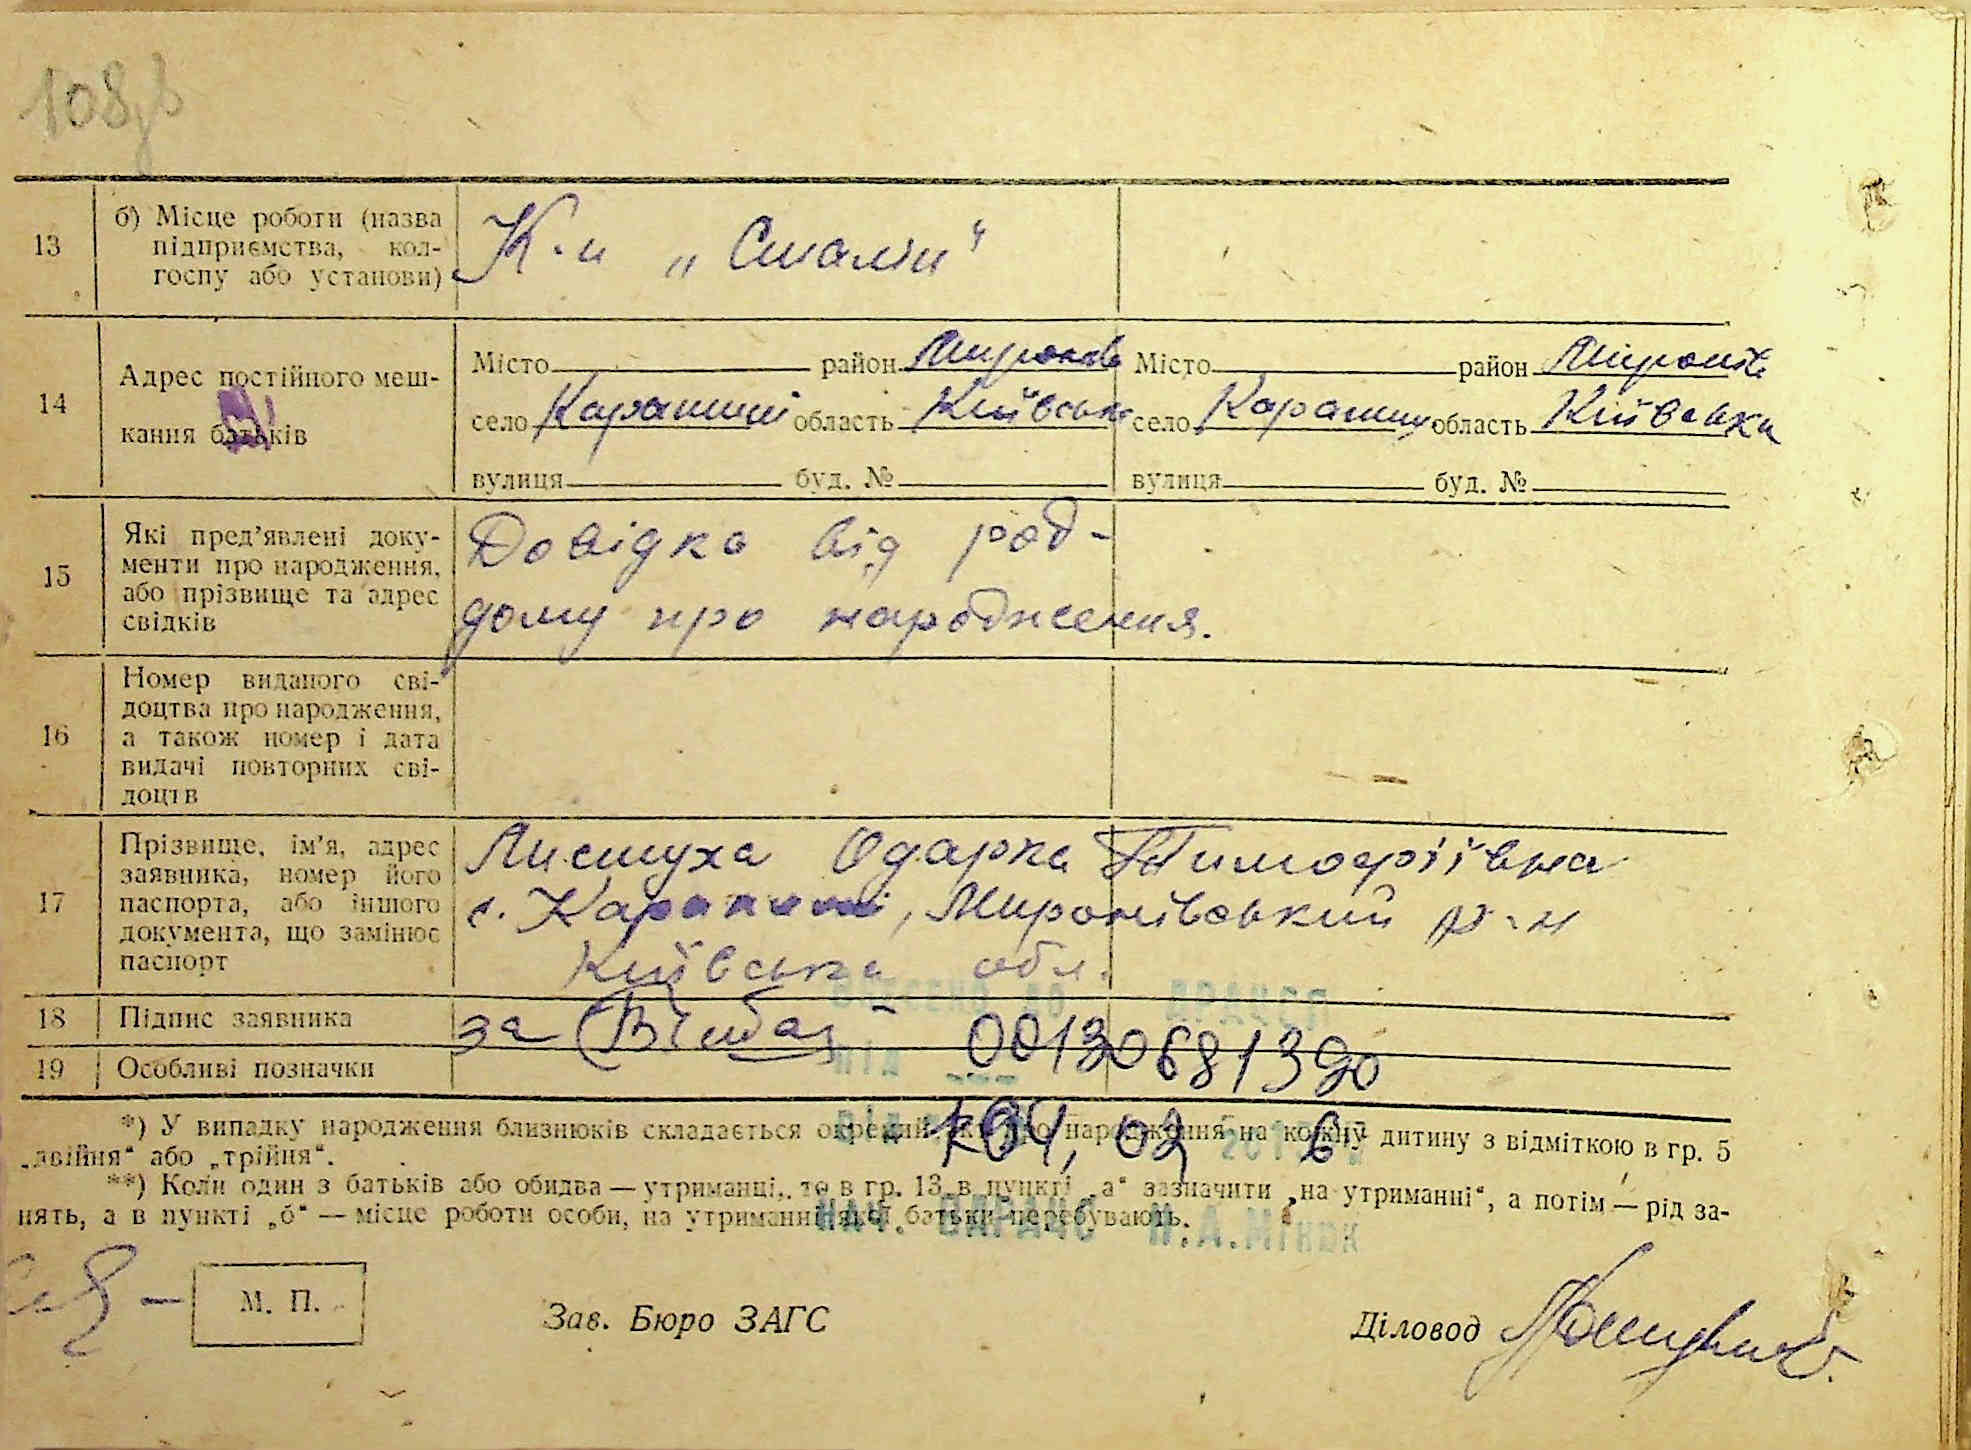 108
13
б) Місце роботи (назва
підприємства, кол-
госпу або установи)
К-п „Сталін“
14
Адрес постійного меш-
кання батьків
Місто район Миронів
село Карапиші область Київська
вулиця буд. №
Місто район Миронів
село Карапиші область Київська
вулиця буд. №
15
Які пред’явлені доку-
менти про народження,
або прізвище та адрес
свідків
Довідка від род-
дому про народження.
16
Номер виданого сві-
доцтва про народження,
а також номер і дата
видачі повторних сві-
доцтв
17
Прізвище, ім’я, адрес
заявника, номер його
паспорта, або іншого
документа, що замінює
паспорт
Листуха Одарка Тимофіївна
с. Карапиші, Миронівський р-н
Київська обл.
18
Підпис заявника
за
19
Особливі позначки
00130681390
*) У випадку народження близнюків складається окремий акт про народження на кожну дитину з відміткою в гр. 5
„двійня“ або „трійня“.
**) Коли один з батьків або обидва — утриманці, то в гр. 13 в пункті „а“ зазначити „на утриманні“, а потім — рід за-
нять, а в пункті „б“ — місце роботи особи, на утриманні якої батьки перебувають.
М. П.
Зав. Бюро ЗАГС
Діловод